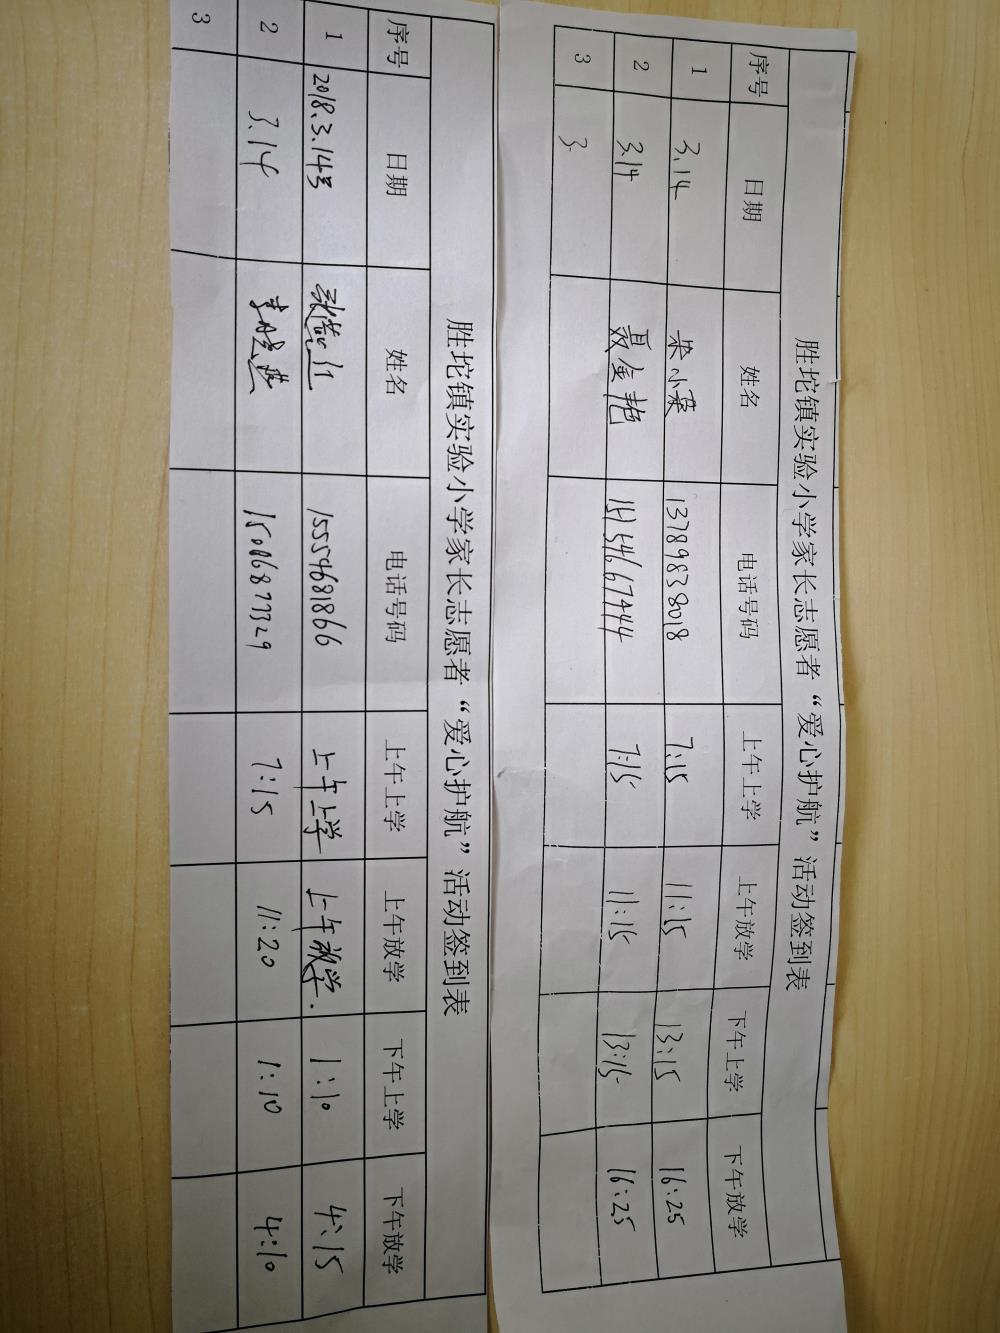 胜坨镇实验小学家长志愿者“爱心护航”活动签到表
序号 日期 姓名 电话号码 上午上学 上午放学 下午上学 下午放学
1 3.14 小荣 13789838018 7:15 11:15 13:15 16:25
2 3.14 聂金艳 15154667444 7:15 11:15 13:15 16:25
3 3
胜坨镇实验小学家长志愿者“爱心护航”活动签到表
序号 日期 姓名 电话号码 上午上学 上午放学 下午上学 下午放学
1 2018.3.14号 15554681866 上午上学 上午放学. 1:10 4:15
2 3.14 李 燕 15006877329 7:15 11:20 1:10 4:10
3